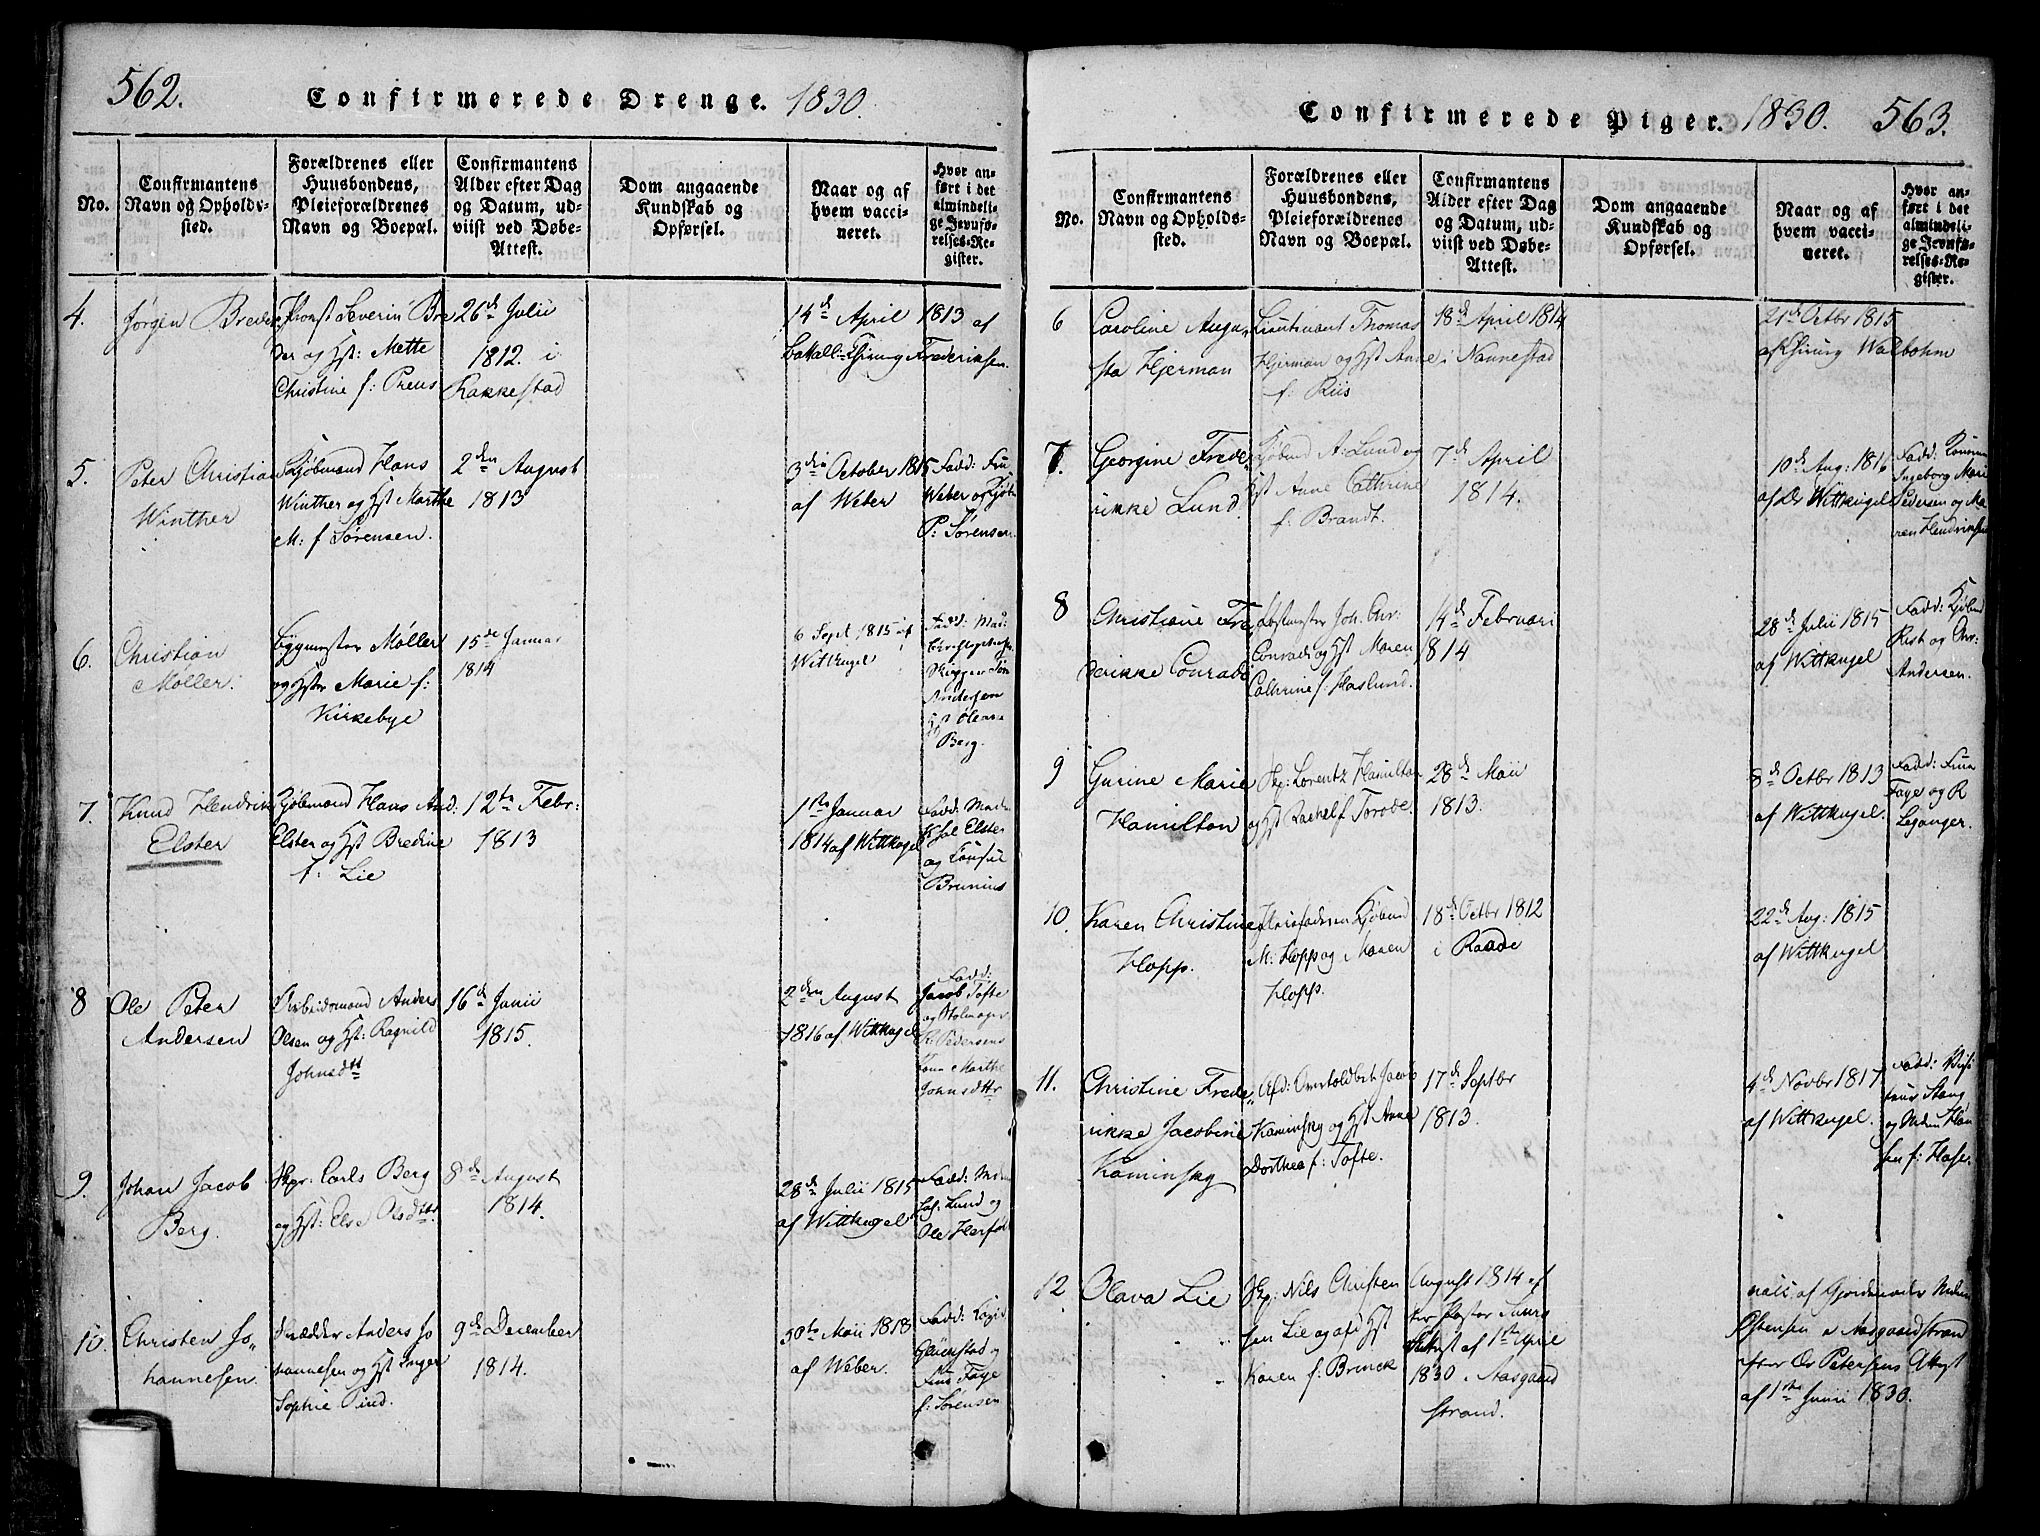 562.
Confirmerede Drenge. 1830.
No.
Confirmantens
Navn og Opholds-
sted.
Forældrenes eller
Huusbondens,
Pleieforældrenes
Navn og Boepæl.
Confirmantens
Alder efter Dag
og Datum, ud-
viist ved Døbe-
Attest.
Dom angaaende
Kundskab og
Opførsel.
Naar og af
hvem vacci-
neret.
Hvor an-
ført i det
almindeli-
ge Jevnfø-
relses-Re-
gister.
4.
Jørgen Breder
Severin Bre
der og Hst: Mette
Christine f: Preus
26de Julii
1812. i
Rakkestad
14de April 1813 af
Bakall: Chirurg Frederiksen.
5.
Peter Christian
Winther
Kjøbmand Hans
Winther og Hst Marthe
M: f Sørensen.
2den August
1813
3die October 1815
af Weber
Fadd: Fru
Weber og Kjøbm
P: Sørensen
6.
Christian
Møller.
Byggmester Møller
og Hstr Marie f:
Kirkebye
15de Januar
1814
6 Sept 1815 af
Wittkugel
Fadd: Mad:
Skipper Tøn
Andersen
Hst Olena
Berg.
7.
Knud Hendrik
Elster
Kjøbmand Hans And:
Elster og Hst Bredine
f: Lie
12te Febr:
1813
1ste Januar
1814 af Wittkugel
Fadd: Mad
Elster
og Consul
Brunius
8
Ole Peter
Andersen
Arbeidsmand Anders
Olsen og Hst: Ragnild
Johnsdtt
16de Junii
1815.
2den August
1816 af Wittkugel
Fadd:
Jacob Tofte
og Stolmager
R: Pedersens
Kone Marthe
Johnsdttr
9.
Johan Jacob
Berg.
Skpr: Carls Berg
og Hst: Else Olsdttr
8de August
1814.
28de Julii 1815
af Wittkugel
Fadd: Mad
Lund og
Ole Herføl
10.
Christen Jo„
hannesen.
Skrædder Anders Jo
hannesen og Hst Inger
Sophie Pind.
9de December
1814.
30te Maii 1818
af Weber.
Fadd:
og
Frue Faye
f: Sørensen
Confirmerede Piger. 1830. 563.
No.
Confirmantens
Navn og Opholds-
sted.
Forældrenes eller
Huusbondens,
Pleieforældrenes
Navn og Boepæl.
Confirmantens
Alder efter Dag
og Datum, ud-
viist ved Døbe-
Attest.
Dom angaaende
Kundskab og
Opførsel.
Naar og af
hvem vacci-
neret.
Hvor an-
ført i det
almindeli-
ge Jevnfø-
relses-Re-
gister.
6
Caroline Augu„
sta Hjerman
Lieutenant Thomas
Hjerman og Hst Anne
f: Riis
18de April 1814
i Nannestad
21de Octbr 1815
af Chirurg Walbohm
7.
Georgine Frede„
rikke Lund
Kjøbmd A: Lund og
Hst Anne Cathrine
f: Brandt.
7de April
1814.
10de Aug: 1816
af Dr Wittkugel
Fadd:
Ingeborg Marie
Pedersen og Ma
ren Hendriksen
8
Christiane Fre„
derikke Conradi
Joh. Chr:
Conradi og Hst Maren
Cathrine f: Haslund.
14de Februari
1814
28de Julii 1815
af Wittkugel
Fadd: Kjøbmd
Rist og Chr:
Andersen.
9
Gurine Marie
Hamilton
Skp: Lorentz Hamilton
og Hst Rachel f Torode.
28de Maii
1813.
8de Octbr 1813
af Wittkugel.
Fadd: Frue
Faye og R
Leganger.
10.
Karen Christine
Hopp.
Kjøbmd
M: Hopp og Maren
Hopp.
18de Octbr 1812
i Raade
22de Aug: 1815
af Wittkugel
11.
Christine Frede„
rikke Jacobine
Kaminsky
Afd: Overtoldbet Jacob
Kaminsky og Hst Anne
Dorthea f: Tofte.
17de Septbr
1813.
4de Novbr 1817
af Wittkugel.
Fadd:
Stang
og Mdm Han
sen f: Hase.
12
Olava Lie
Skp: Nils Christen
sen Lie og afd Hst
Karen f: Brinck
August 1814 ef
ter Pastor
Attest af 1ste April
1830 i Aasgaard
strand.
vacc af Gjordemoder Madm
Østensen i Aasgaardstran
efter Dr Petersens Attest
af 1ste Junii 1830.